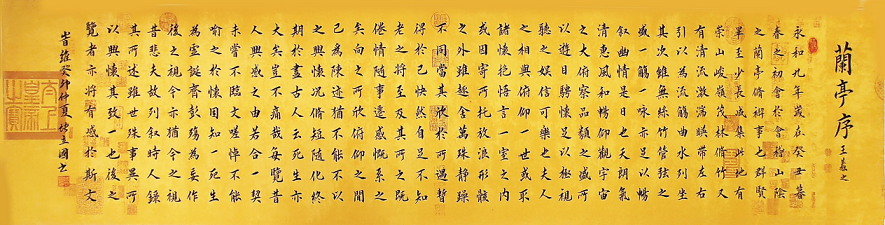 蘭亭序
王羲之
永和九年歲在癸丑暮
春之初會於會稽山陰
之蘭亭脩稧事也群賢
畢至少長咸集此地有
崇山峻嶺茂林脩竹又
有清流激湍暎帶左右
引以為流觴曲水列坐
其次雖無絲竹管弦之
盛一觴一詠亦足以暢
叙幽情是日也天朗氣
清惠風和暢仰觀宇宙
之大俯察品類之盛所
以遊目騁懷足以極視
聽之娛信可樂也夫人
之相與俯仰一世或取
諸懷抱悟言一室之內
或因寄所托放浪形骸
之外雖趣舍萬殊靜躁
不同當其欣於所遇暫
得於己快然自足不知
老之將至及其所之既
倦情隨事遷感慨係之
矣向之所欣俯仰之間
已為陳迹猶不能不以
之興懷況脩短隨化終
期於盡古人云死生亦
大矣豈不痛哉每覽昔
人興感之由若合一契
未嘗不臨文嗟悼不能
喻之於懷固知一死生
為虛誕齊彭殤為妄作
後之視今亦猶今之視
昔悲夫故列叙時人錄
其所述雖世殊事異所
以興懷其致一也後之
覽者亦將有感於斯文
維癸卯仲夏